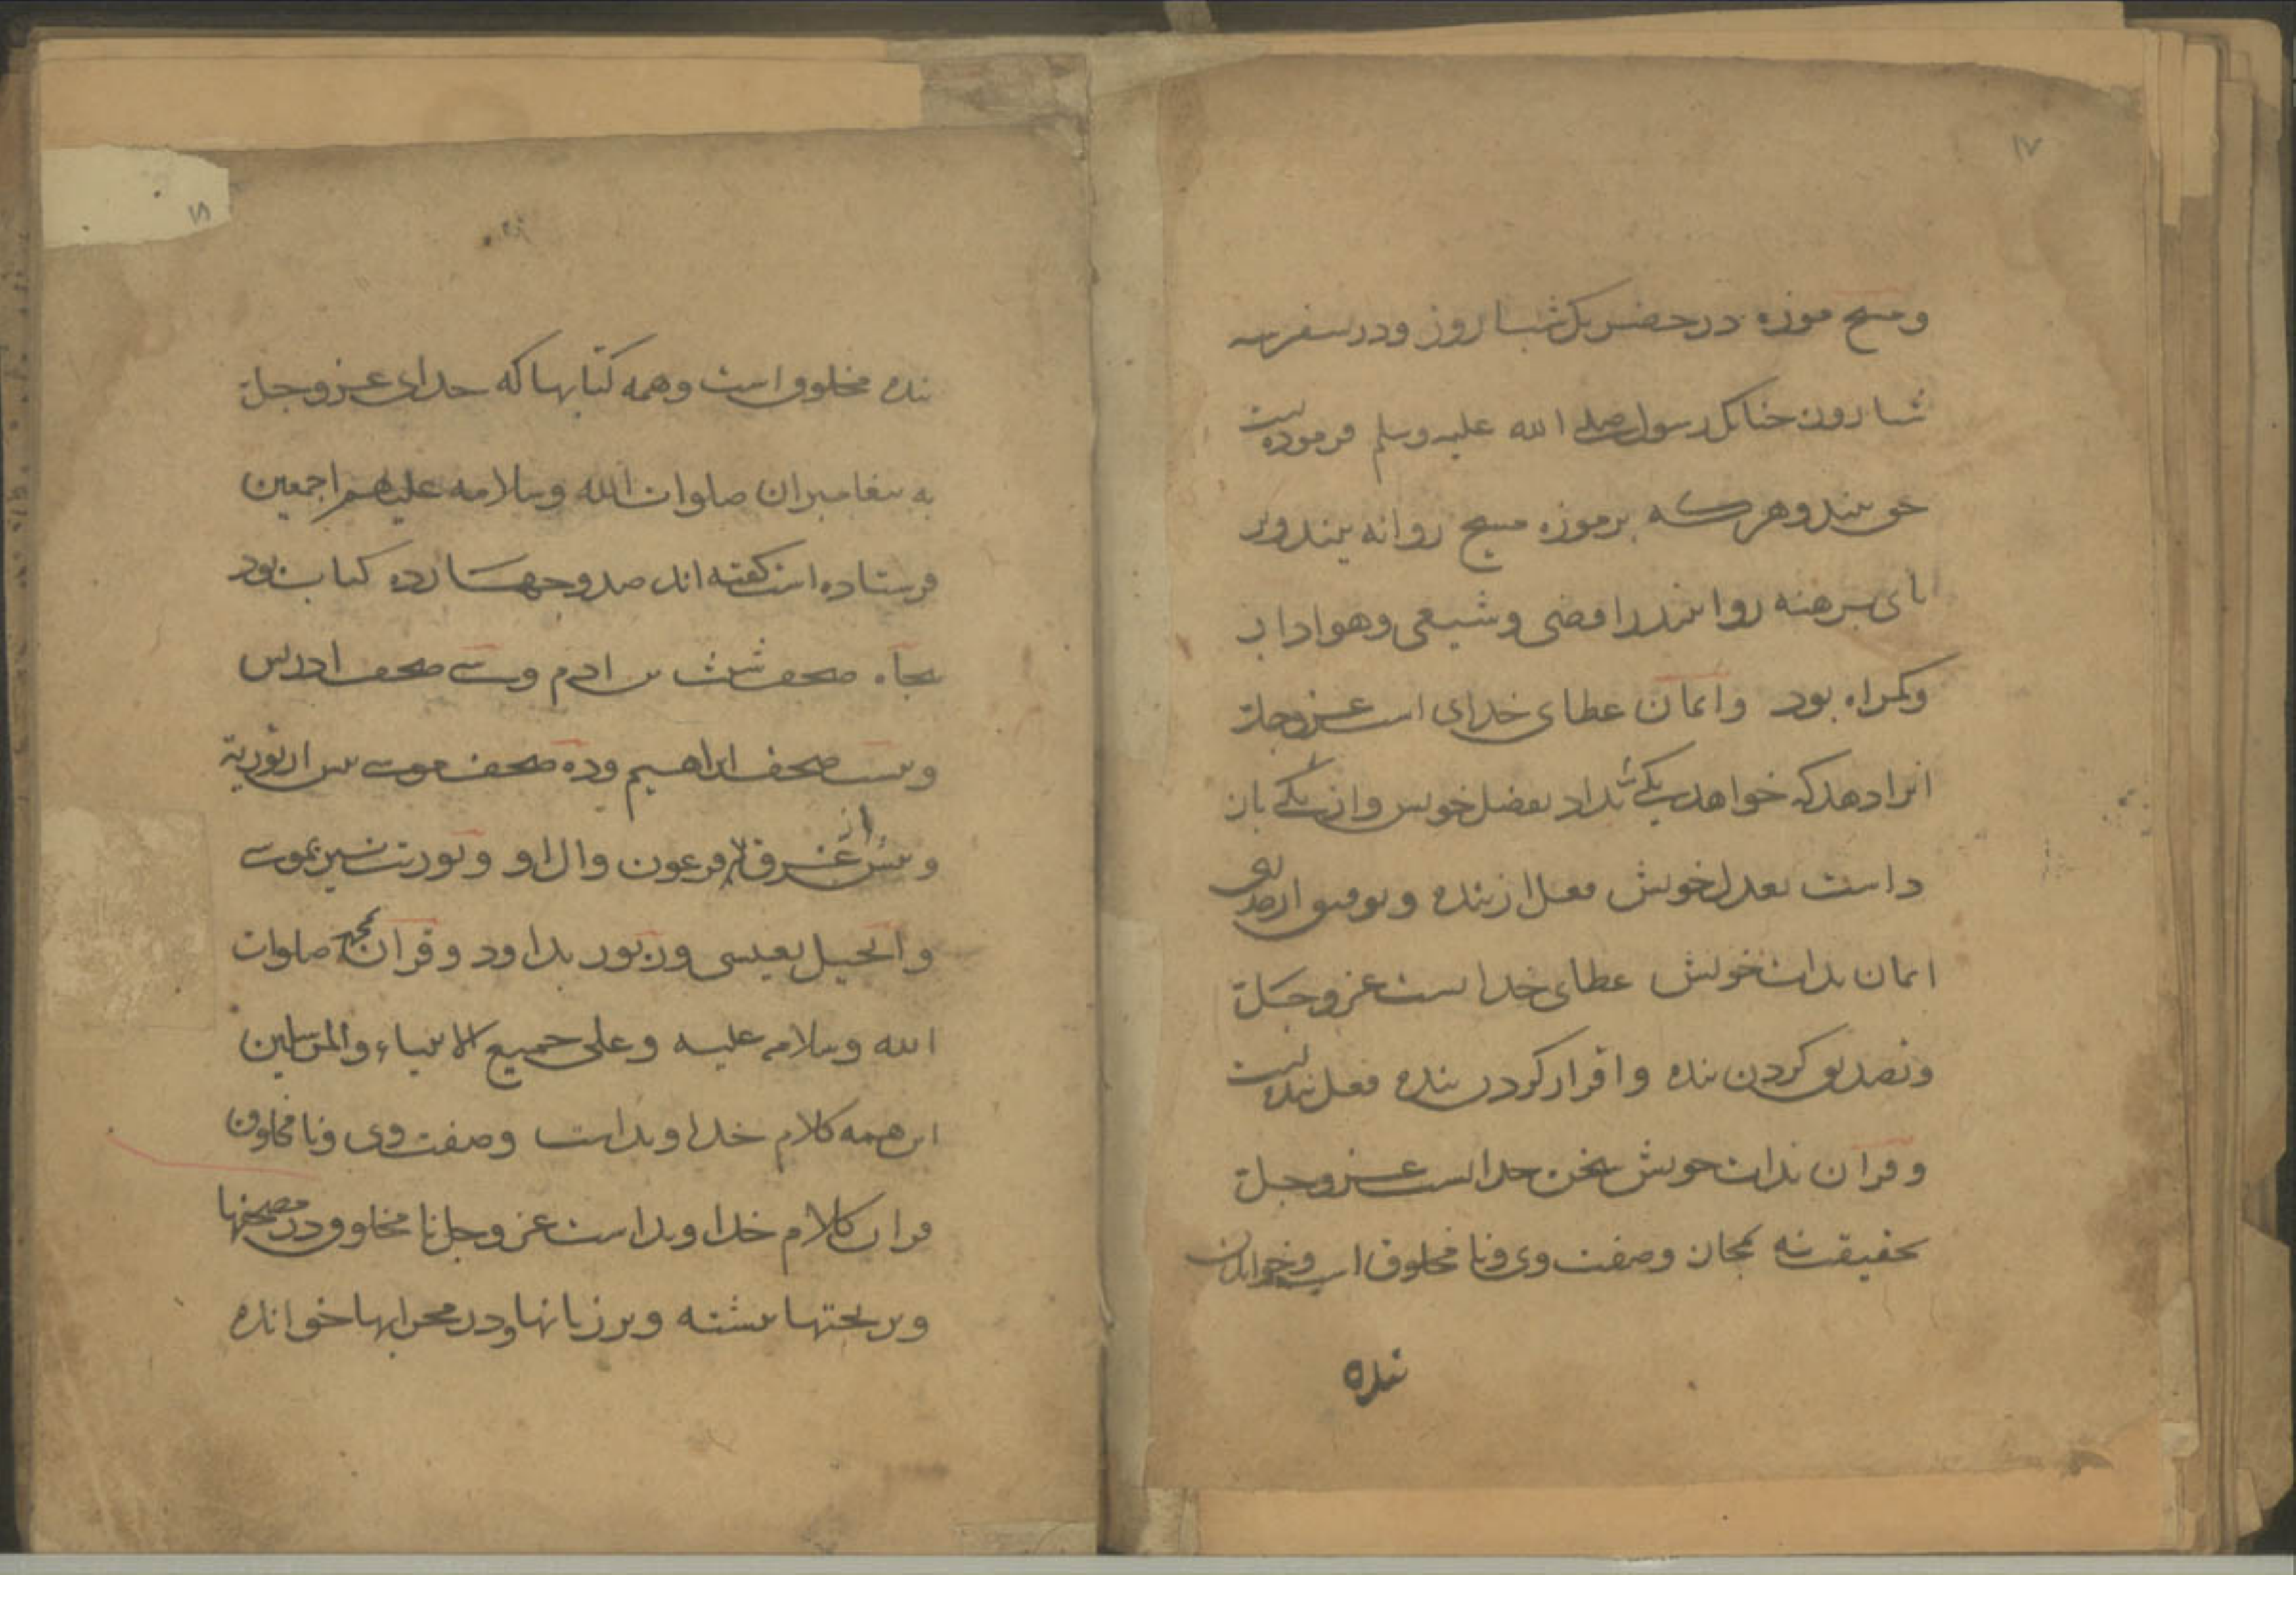 ۱۷
ومسح موزه در حضر یک شبا روز ودر سفر سه
شبا روز چنانک رسول صلی الله علیه وسلم فرموده است
حق بیند وهرکه بر موزه مسح روا نه بیند وبر
پای برهنه روا بیند رافضی وشیعی وهوادار
وکمراه بود وایمان عطای خدای است عزوجل
انرا دهد که خواهد یکی را بداد بفضل خویش واز یکی باز
داشت بعدل خویش فعل از بنده وتوفیق از خدای
ایمان بذات خویش عطای خداست عزوجل
وتصدیق کردن بنده واقرار کردن بنده فعل بنده است
وقران بذات خویش سخن خداست عزوجل
بحقیقت نه بمجاز وصفت وی ونا مخلوق است وخواندن
بنده
۱۸
بنده مخلوق است وهمه کتابها که خدای عزوجل
به پیغامبران صلوات الله وسلامه علیهم اجمعین
فرستاده است کفته اند صد وچهارده کتاب بود
پنجاه صحف شیث بن ادم وسی صحف ادریس
وبیست صحف ابراهیم وده صحف موسی پیش از توریة
وپیش از غرق فرعون وال او وتوریت نیز بموسی
وانجیل بعیسی وزبور بداود وقران بمحمد صلوات
الله وسلامه علیه وعلی جمیع الانبیاء والمرسلین
این همه کلام خداوند است وصفت وی ونا مخلوق
قران کلام خداوند است عزوجل نا مخلوق ودر مصحفها
وبر تختها نبشته وبر زبانها ودر محرابها خوانده